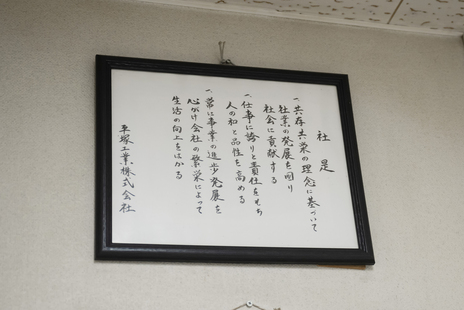 社是
一、共存共栄の理念に基づいて
社業の発展を図り
社会に貢献する
一、仕事に誇りと責任をもち
人の和と品性を高める
一、常に事業の進歩発展を
心がけ会社の繁栄によって
生活の向上をはかる
平塚工業株式会社